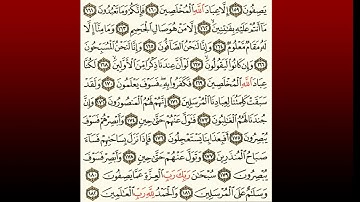 يَصِفُونَ ١٥٩ إِلَّا عِبَادَ ٱللَّهِ ٱلْمُخْلَصِينَ ١٦٠ فَإِنَّكُمْ وَمَا تَعْبُدُونَ ١٦١
مَآ أَنتُمْ عَلَيْهِ بِفَـٰتِنِينَ ١٦٢ إِلَّا مَنْ هُوَ صَالِ ٱلْجَحِيمِ ١٦٣ وَمَا مِنَّآ إِلَّا
لَهُۥ مَقَامٌ مَّعْلُومٌ ١٦٤ وَإِنَّا لَنَحْنُ ٱلصَّآفُّونَ ١٦٥ وَإِنَّا لَنَحْنُ ٱلْمُسَبِّحُونَ
١٦٦ وَإِن كَانُوا۟ لَيَقُولُونَ ١٦٧ لَوْ أَنَّ عِندَنَا ذِكْرًا مِّنَ ٱلْأَوَّلِينَ ١٦٨ لَكُنَّا
عِبَادَ ٱللَّهِ ٱلْمُخْلَصِينَ ١٦٩ فَكَفَرُوا۟ بِهِۦ فَسَوْفَ يَعْلَمُونَ ١٧٠ وَلَقَدْ
سَبَقَتْ كَلِمَتُنَا لِعِبَادِنَا ٱلْمُرْسَلِينَ ١٧١ إِنَّهُمْ لَهُمُ ٱلْمَنصُورُونَ ١٧٢ وَإِنَّ
جُندَنَا لَهُمُ ٱلْغَـٰلِبُونَ ١٧٣ فَتَوَلَّ عَنْهُمْ حَتَّىٰ حِينٍ ١٧٤ وَأَبْصِرْهُمْ فَسَوْفَ
يُبْصِرُونَ ١٧٥ أَفَبِعَذَابِنَا يَسْتَعْجِلُونَ ١٧٦ فَإِذَا نَزَلَ بِسَاحَتِهِمْ فَسَآءَ
صَبَاحُ ٱلْمُنذَرِينَ ١٧٧ وَتَوَلَّ عَنْهُمْ حَتَّىٰ حِينٍ ١٧٨ وَأَبْصِرْ فَسَوْفَ
يُبْصِرُونَ ١٧٩ سُبْحَـٰنَ رَبِّكَ رَبِّ ٱلْعِزَّةِ عَمَّا يَصِفُونَ ١٨٠
وَسَلَـٰمٌ عَلَى ٱلْمُرْسَلِينَ ١٨١ وَٱلْحَمْدُ لِلَّهِ رَبِّ ٱلْعَـٰلَمِينَ ١٨٢